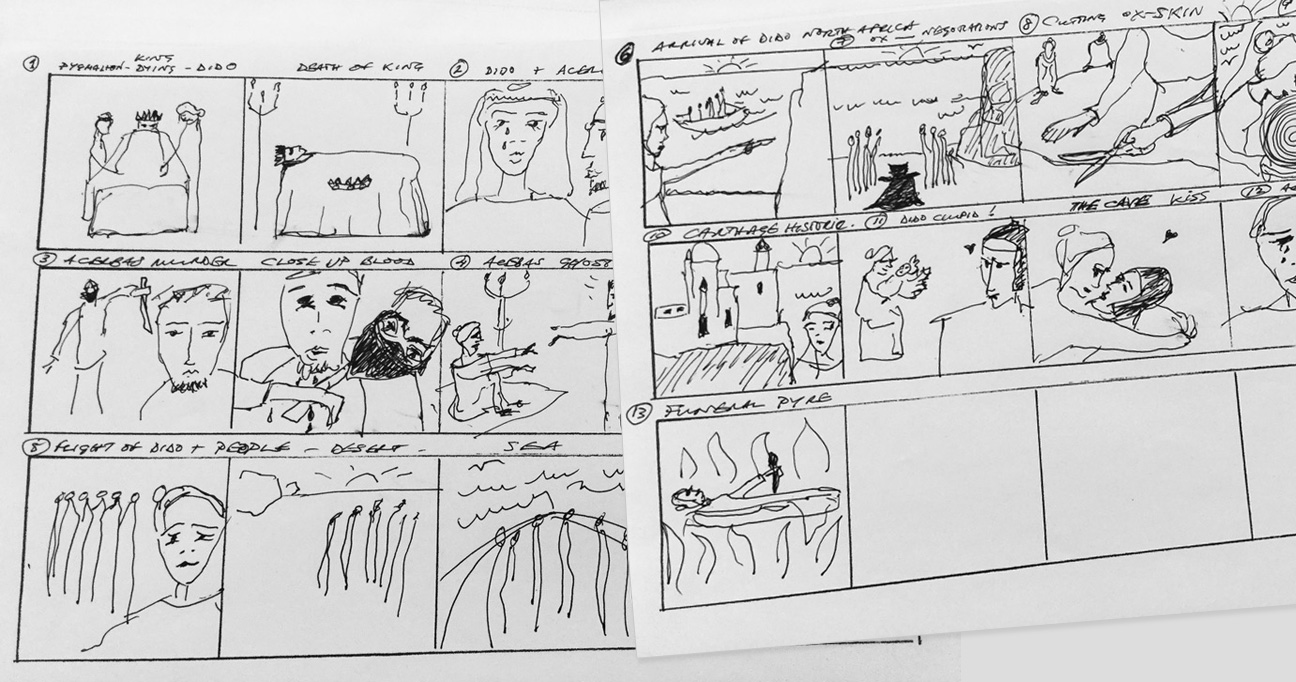 ① KING
PYGMALION - DYING - DIDO
DEATH OF KING
② DIDO + ACER
③ ACERBAS MURDER CLOSE UP BLOOD
④
⑤ FLIGHT OF DIDO + PEOPLE - DESERT - SEA
⑥ ARRIVAL OF DIDO NORTH AFRICA
⑦ OX - NEGOTIATIONS
⑧ CUTTING OX-SKIN
⑨
⑩ CARTHAGE HISTORIC.
⑪ DIDO CUPID!
THE CAVE KISS
⑫
⑬ FUNERAL PYRE